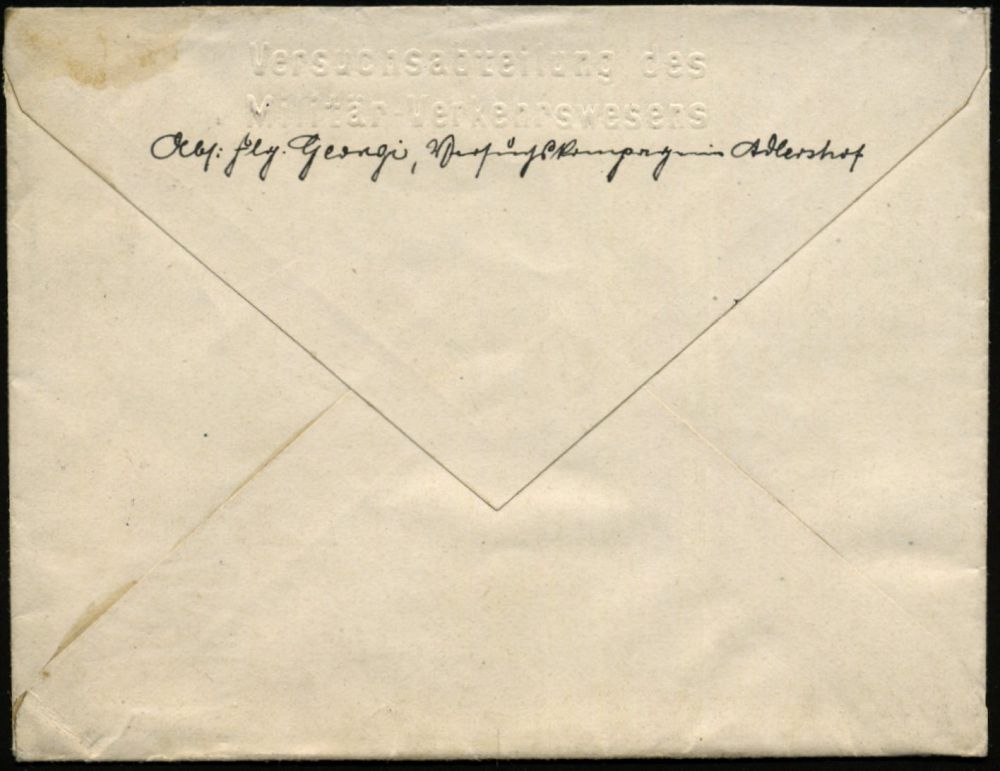 Versuchsabteilung des
Militär-Verkehrswesens
Abs: Flg. Georgi, Versuchskompagnie Adlershof